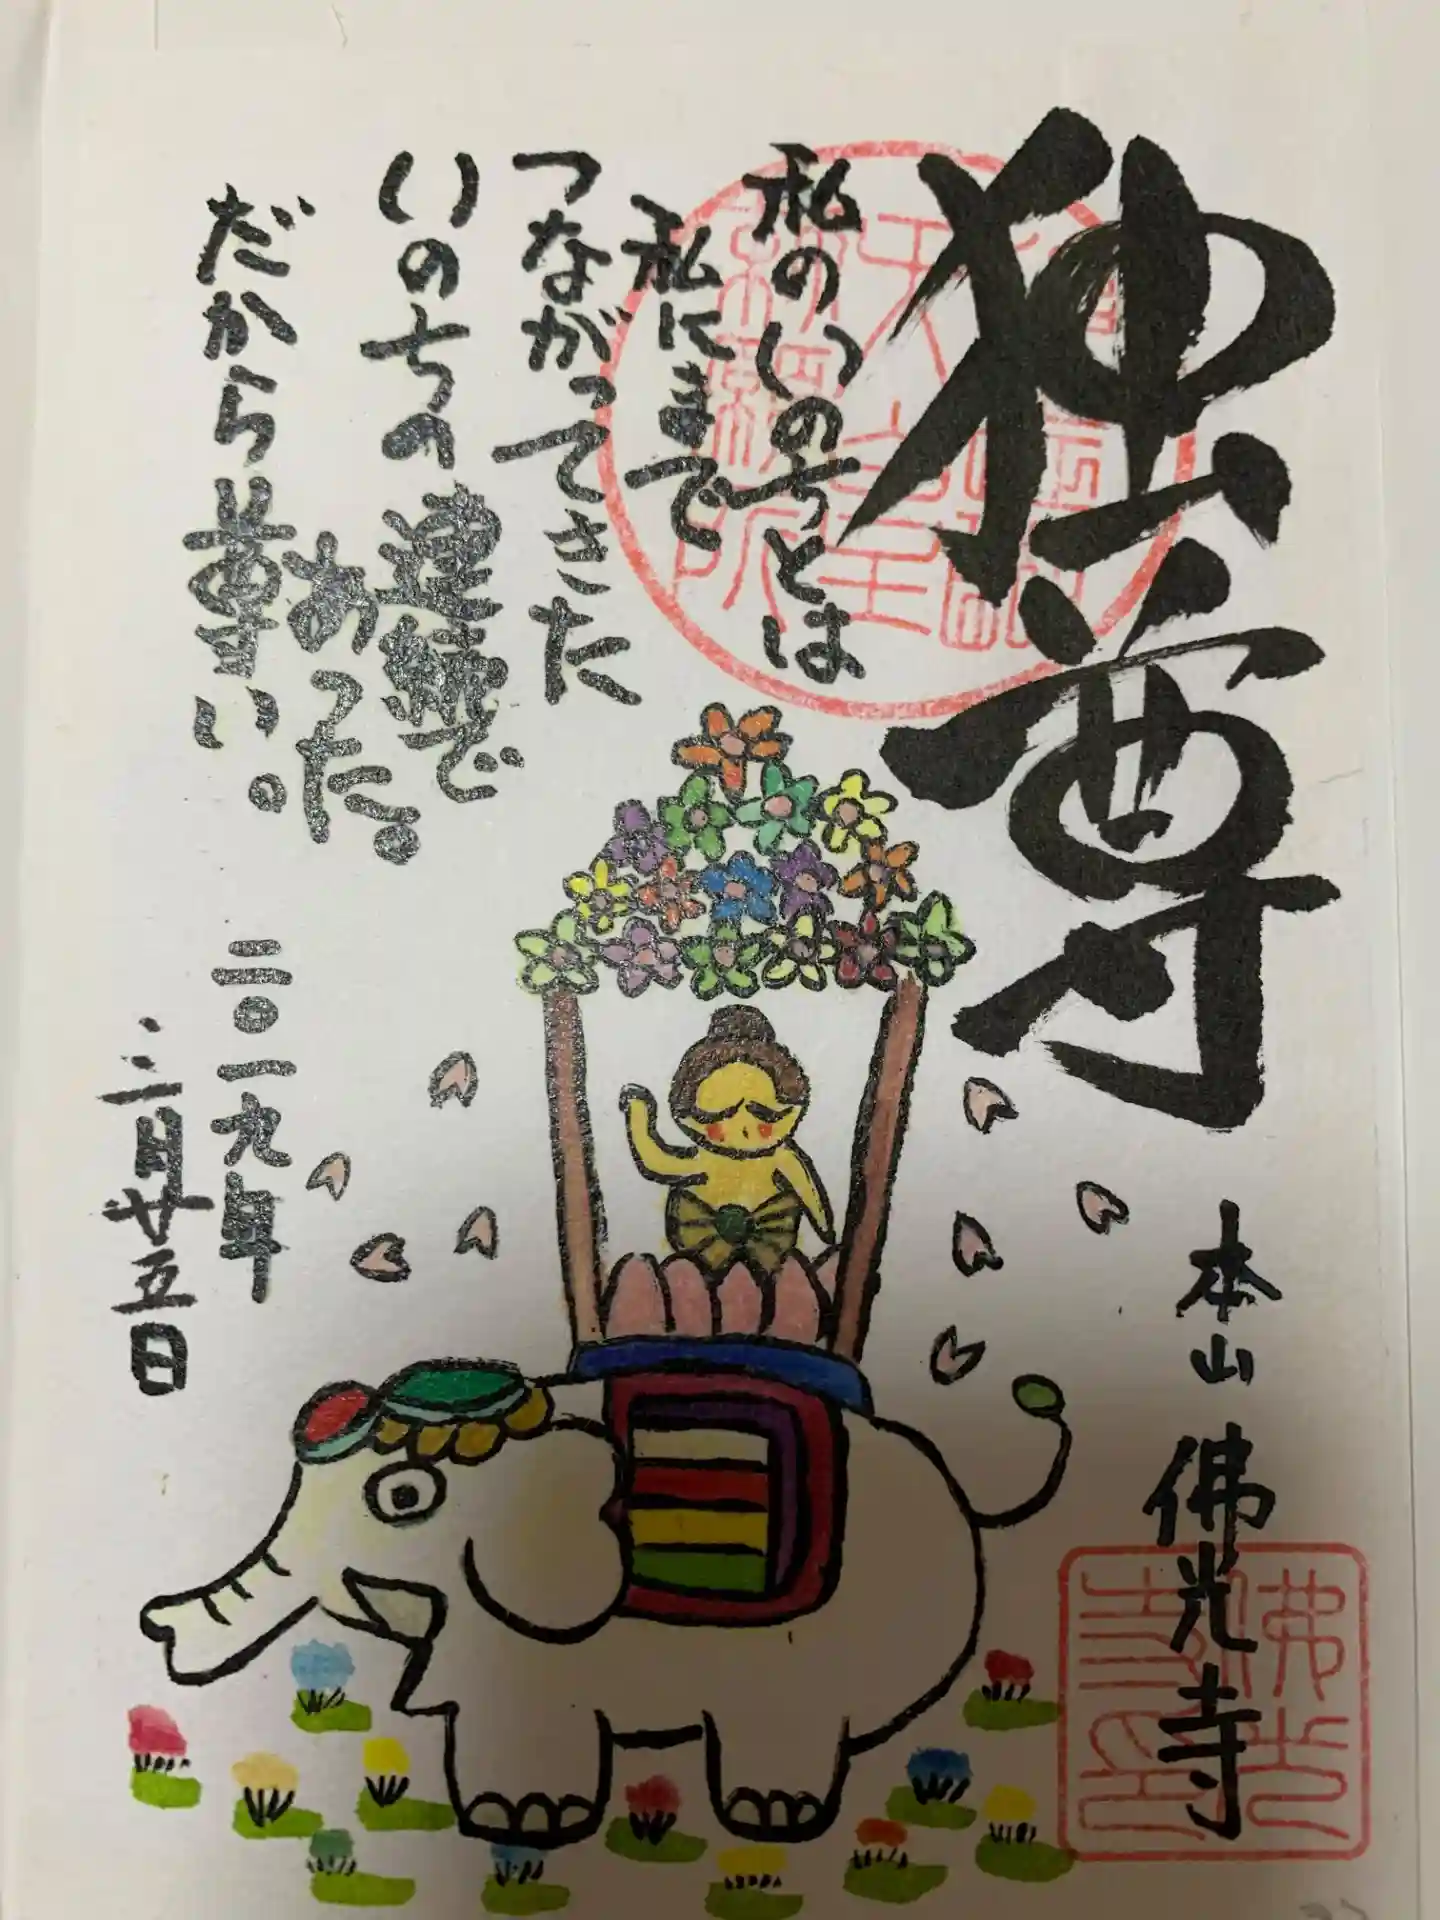 独尊
本山 佛光寺
私のいのちとは
私にまで
つながってきた
いのちの連続で
あった。
だから尊い。
二〇一九年
三月廿五日
佛光
寺印